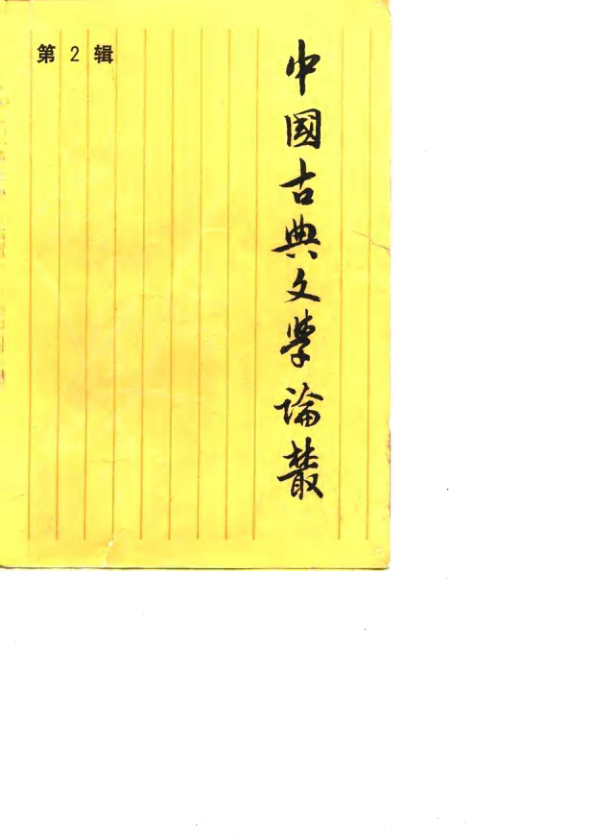 第2辑
中國古典文學論叢